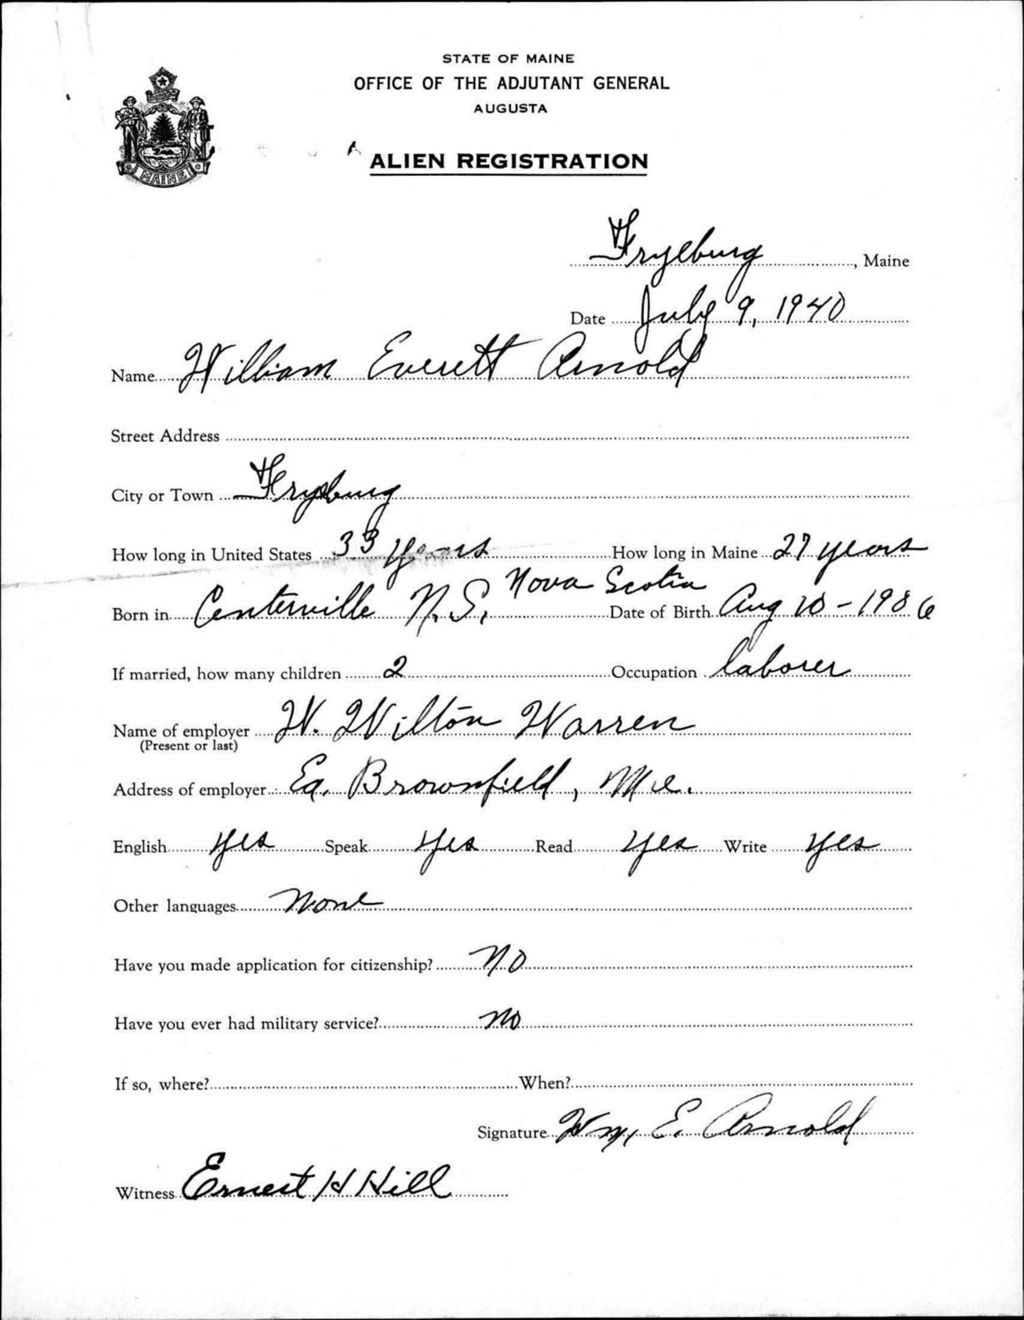 STATE OF MAINE
OFFICE OF THE ADJUTANT GENERAL
AUGUSTA
MAINE
ALIEN REGISTRATION
Fryeburg, Maine
Date July 9, 1940
Name William Everett Arnold
Street Address
City or Town Fryeburg
How long in United States 33 years How long in Maine 27 years
Born in Centerville N.S., Nova Scotia Date of Birth Aug 10-1906
If married, how many children 2 Occupation laborer
Name of employer W. Wilton Warren
(Present or last)
Address of employer Ea. Brownfield, Me.
English yes Speak yes Read yes Write yes
Other languages None
Have you made application for citizenship? No
Have you ever had military service? No
If so, where? When?
Signature Wm. E. Arnold
Witness Ernest H Hill